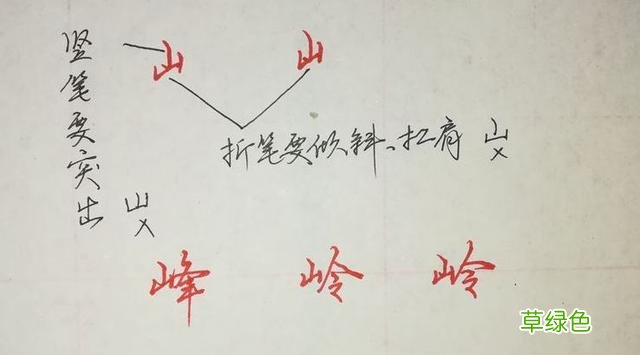 竖笔要突出
山 山
折笔要倾斜、扛肩 山 ×
山 ×
峰 岭 岭
草绿色